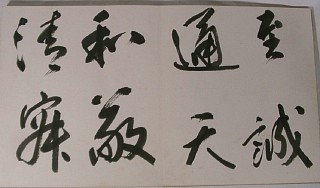 至誠
通天
和敬
清寂